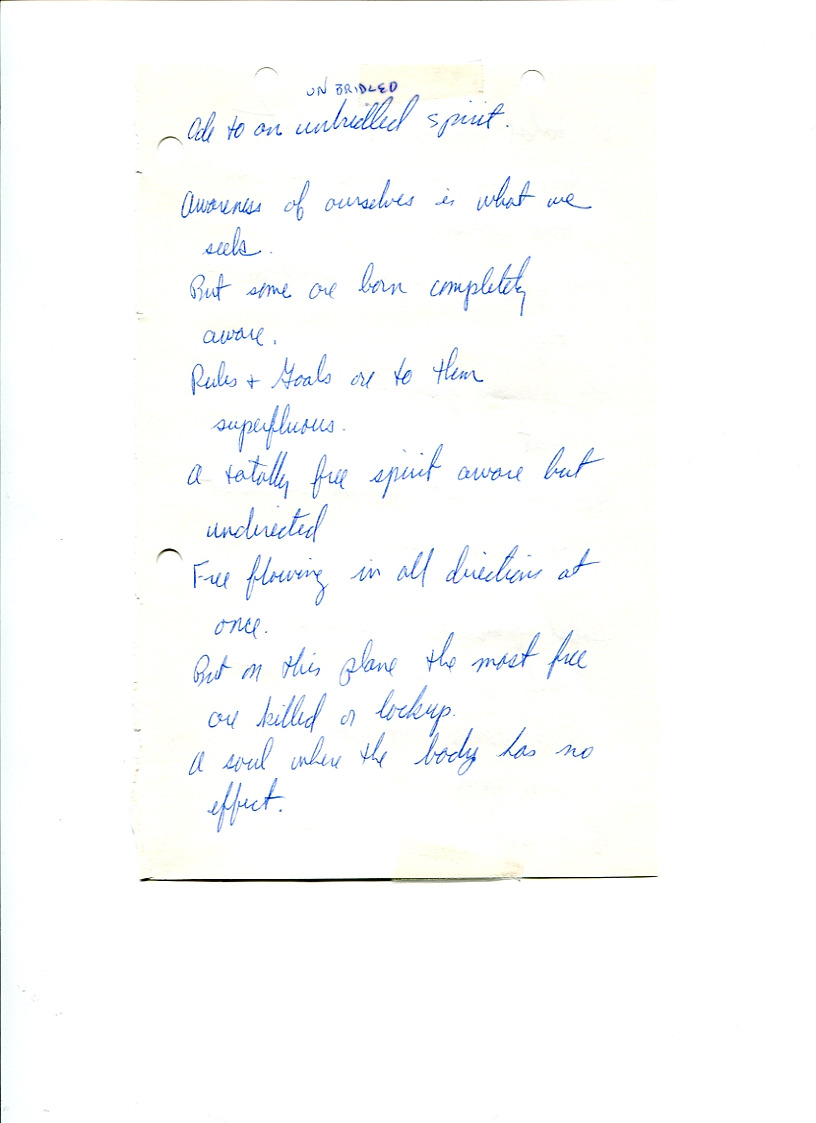 UNBRIDLED
Ode to an unbridled spirit.
Awareness of ourselves is what we
seek.
But some are born completely
aware.
Rules + Goals are to them
superfluous.
A totally free spirit aware but
undirected
Free flowing in all directions at
once.
But on this plane the most free
are killed or lockup.
A soul where the body has no
effect.